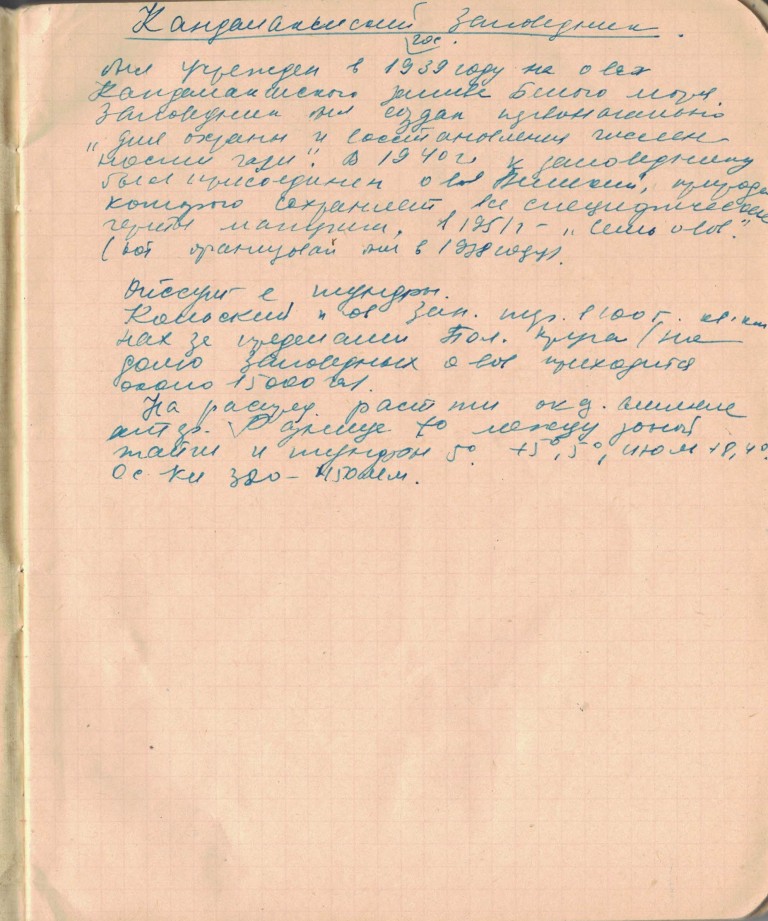 Кандалакшский заповедник.
гос.
был учрежден в 1939 году на о вах
Кандалакшского залива Белого моря.
Заповедник был создан первоначально
"для охраны и восстановления числен
ности гаги". В 1940 г к заповеднику
был присоединен о в Великий, природа
которого сохраняет все специфические
черты материка, в 1951 г - "Семь о-вов".
(был организован в 1938 году).
с тундры.
Кольский п ов зап. в 100 т. кв. км
нах за пределами Пол. круга (на
долю заповедных о вов приходится
около 15000 га).
На раст ти ок. д. влияние
Разница t° между зоной
тайги и тундрой 5° +5°, 5°, июль +8,4°.
Ос ки 320 - 450 мм.